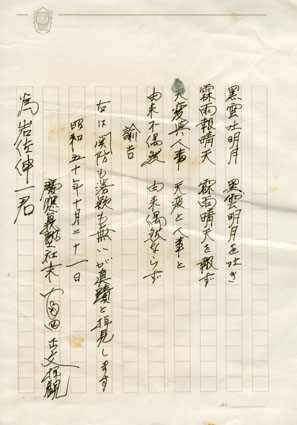 黒雲吐明月　黒雲明月を吐き
霖雨報晴天　霖雨晴天を報ず
天変與人事　天変と人事と
由来不偶然　由来偶然ならず
諭吉
右は関防も落款も無いが真蹟と拝見します
昭和五十年十月二十一日
慶應義塾社末 富田正文拝観
為岩佐伸一君